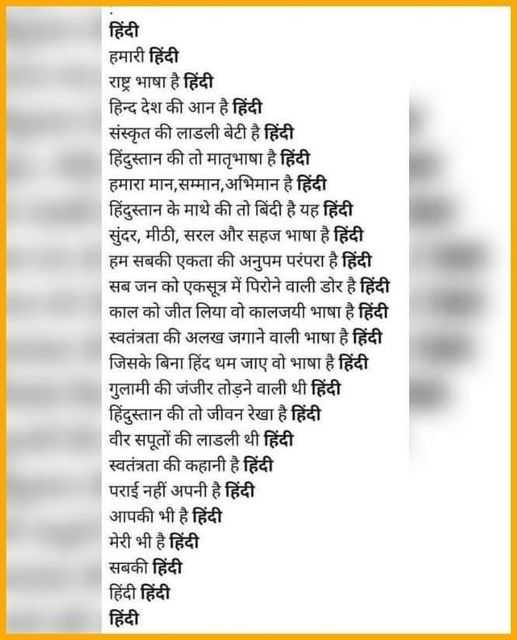 हिंदी
हमारी हिंदी
राष्ट्र भाषा है हिंदी
हिन्द देश की आन है हिंदी
संस्कृत की लाडली बेटी है हिंदी
हिंदुस्तान की तो मातृभाषा है हिंदी
हमारा मान,सम्मान,अभिमान है हिंदी
हिंदुस्तान के माथे की तो बिंदी है यह हिंदी
सुंदर, मीठी, सरल और सहज भाषा है हिंदी
हम सबकी एकता की अनुपम परंपरा है हिंदी
सब जन को एकसूत्र में पिरोने वाली डोर है हिंदी
काल को जीत लिया वो कालजयी भाषा है हिंदी
स्वतंत्रता की अलख जगाने वाली भाषा है हिंदी
जिसके बिना हिंद थम जाए वो भाषा है हिंदी
गुलामी की जंजीर तोड़ने वाली थी हिंदी
हिंदुस्तान की तो जीवन रेखा है हिंदी
वीर सपूतों की लाडली थी हिंदी
स्वतंत्रता की कहानी है हिंदी
पराई नहीं अपनी है हिंदी
आपकी भी है हिंदी
मेरी भी है हिंदी
सबकी हिंदी
हिंदी हिंदी
हिंदी